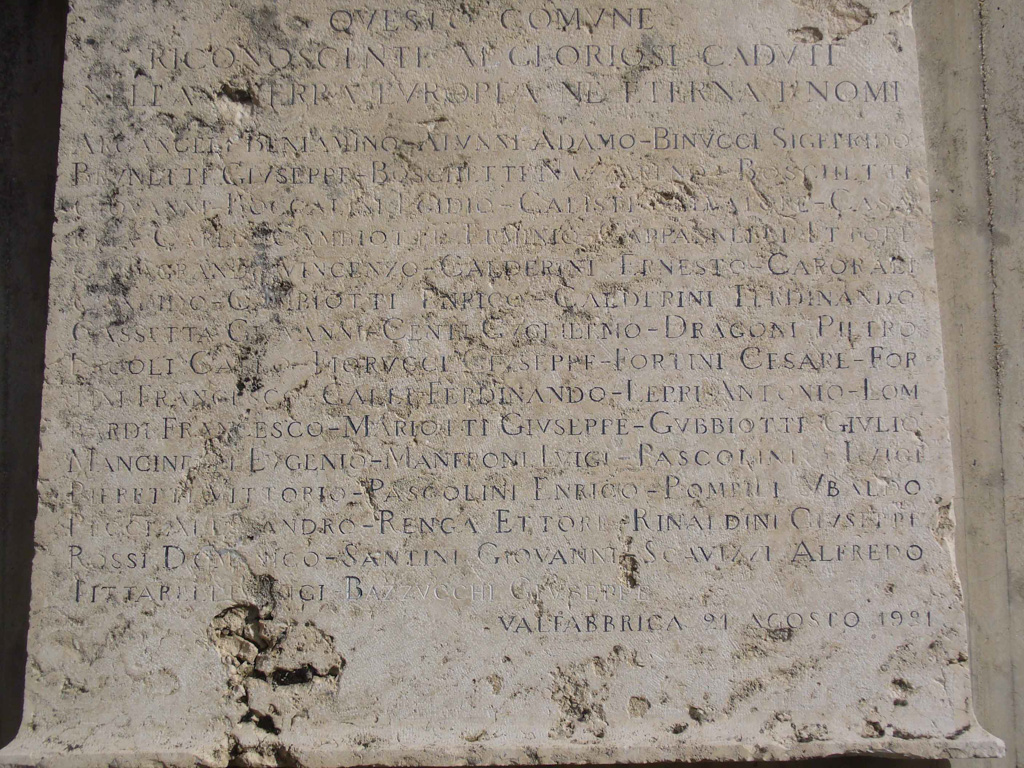 QVESTO COMVNE
RICONOSCENTE AI GLORIOSI CADVTI
NELLA GVERRA EVROPEA NE ETERNA I NOMI
ARCANGELI BENIAMINO-ALVNNI ADAMO-BINVCCI SIGEFRIDO
BRVNETTI GIVSEPPE-BOSCHETTI NAZZARENO-BOSCHETTI
GIOVANNI EGIDIO-CALISTI SALVATORE-CASA
CARLO-GAMBIOTTI ERMINIO-CAPPANNELLI ETTORE
VINCENZO-CALDERINI ERNESTO-CAPORALI
GAMBIOTTI ENRICO-CALDERINI FERDINANDO
CASSETTA GIOVANNI-CENTI GVGLIELMO-DRAGONI PIETRO
FIORVCCI GIVSEPPE-FORTINI CESARE-FOR
TINI FRANCESCO-GALLI FERDINANDO-LEPRI ANTONIO-LOM
BARDI FRANCESCO-MARIOTTI GIVSEPPE-GVBBIOTTI GIVLIO
EVGENIO-MANFRONI LVIGI-PASCOLINI LVIGI
PIERETTI VITTORIO-PASCOLINI ENRICO-POMPILI VBALDO
RICCI ALESSANDRO-RENGA ETTORE-RINALDINI GIVSEPPE
ROSSI DOMENICO-SANTINI GIOVANNI-SCAVIZZI ALFREDO
TITTARELLI LVIGI-BAZZVCCHI GIVSEPPE
VALFABBRICA 21 AGOSTO 1921